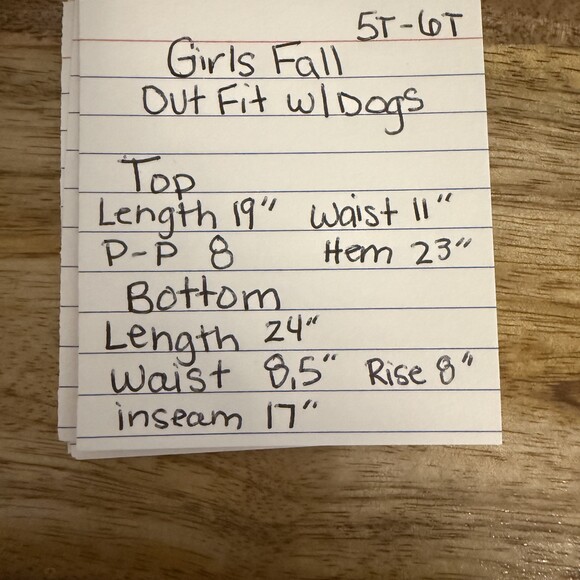 5T-6T
Girls Fall
Out Fit w/Dogs
Top
Length 19" Waist 11"
P-P 8 Hem 23"
Bottom
Length 24"
Waist 8,5" Rise 8"
inseam 17"